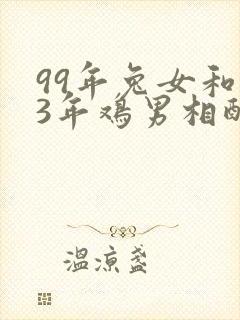 99年兔女和
3年鸡男相配
温凉盏